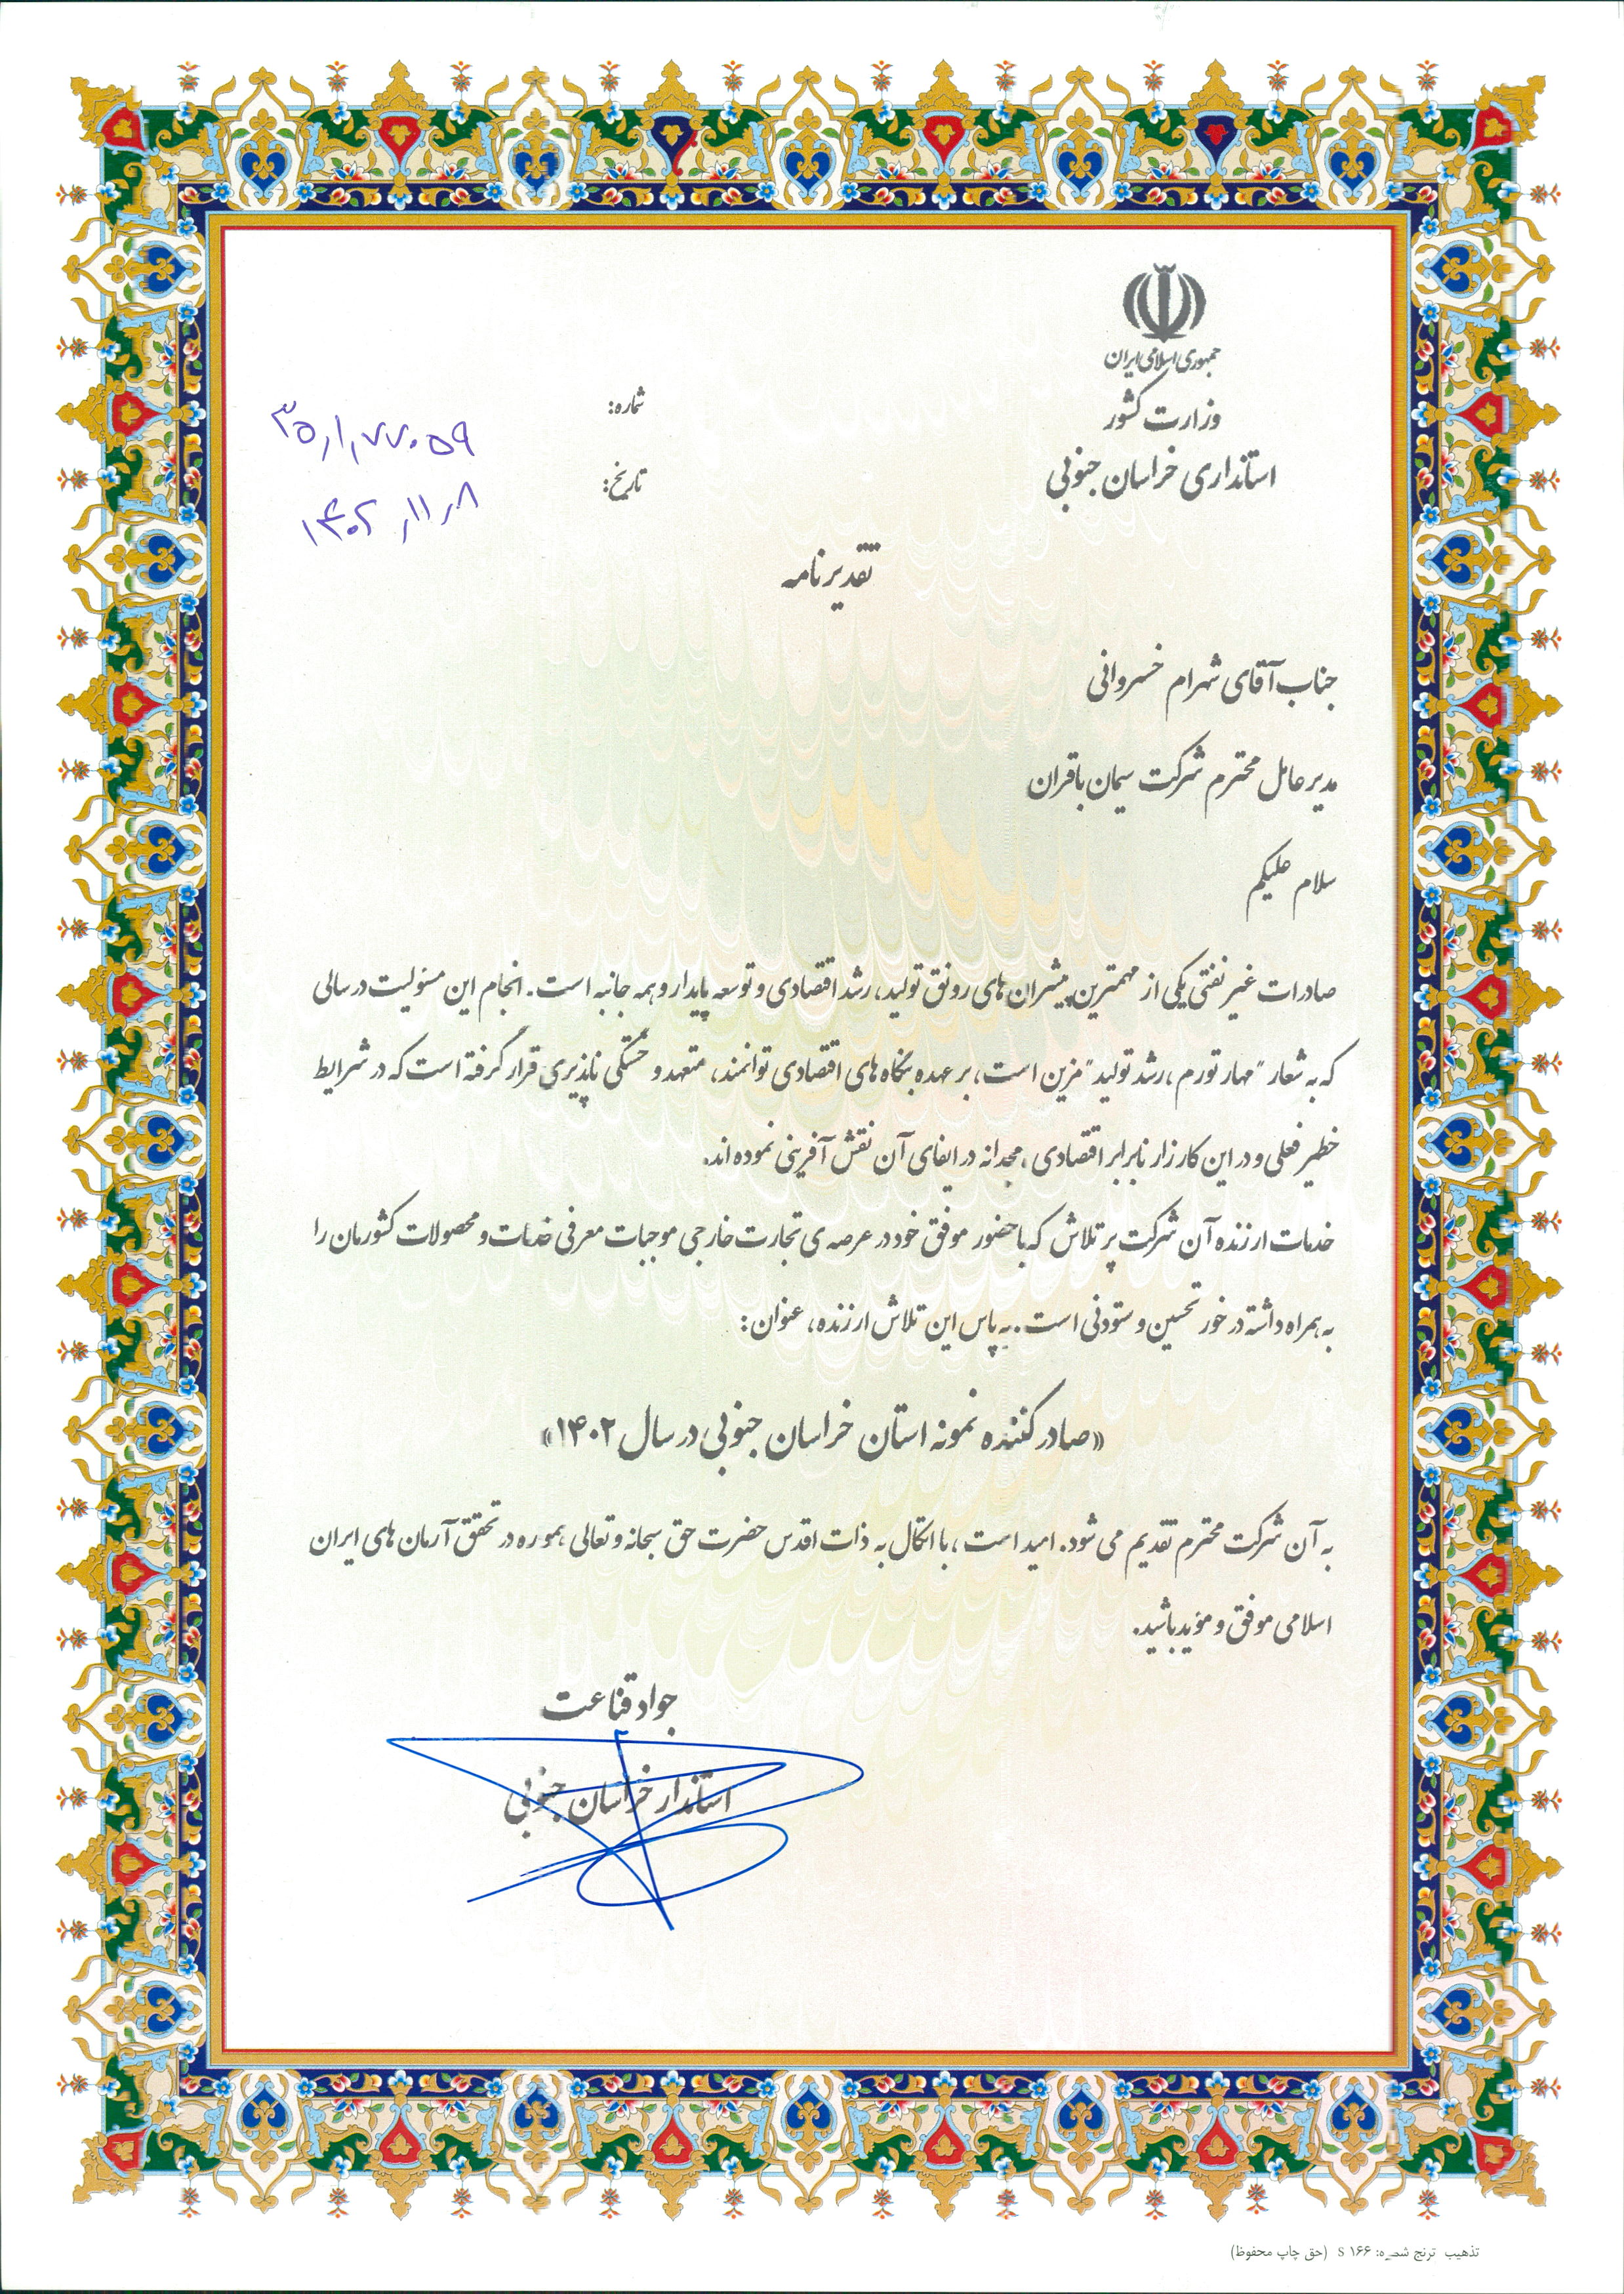 جمهوری اسلامی ایران
وزارت کشور
استانداری خراسان جنوبی
شماره: ۳۵٫۱٫۷۷۰۵۹
تاریخ: ۱۴۰۲٫۱۱٫۸
تقدیرنامه
جناب آقای شهرام خسروانی
مدیرعامل محترم شرکت سیمان باقران
سلام علیکم
صادرات غیرنفتی یکی از مهمترین پیشران های رونق تولید، رشد اقتصادی و توسعه پایدار و همه جانبه است. انجام این مسئولیت در سالی
که به شعار "مهار تورم ، رشد تولید" مزین است، بر عهده بنگاه های اقتصادی توانمند، متعهد و خستگی ناپذیری قرار گرفته است که در شرایط
خطیر فعلی و در این کارزار نابرابر اقتصادی ، مجدانه در ایفای آن نقش آفرینی نموده اند.
خدمات ارزنده آن شرکت پرتلاش که با حضور موفق خود در عرصه ی تجارت خارجی موجبات معرفی خدمات و محصولات کشورمان را
به همراه داشته در خور تحسین و ستودنی است. به پاس این تلاش ارزنده، عنوان:
«صادرکننده نمونه استان خراسان جنوبی در سال ۱۴۰۲»
به آن شرکت محترم تقدیم می شود. امید است ، با اتکال به ذات اقدس حضرت حق سبحانه و تعالی همواره در تحقق آرمان های ایران
اسلامی موفق و موید باشید.
جواد قناعت
استاندار خراسان جنوبی
تذهیب ترنج شماره: S ۱۶۶ (حق چاپ محفوظ)